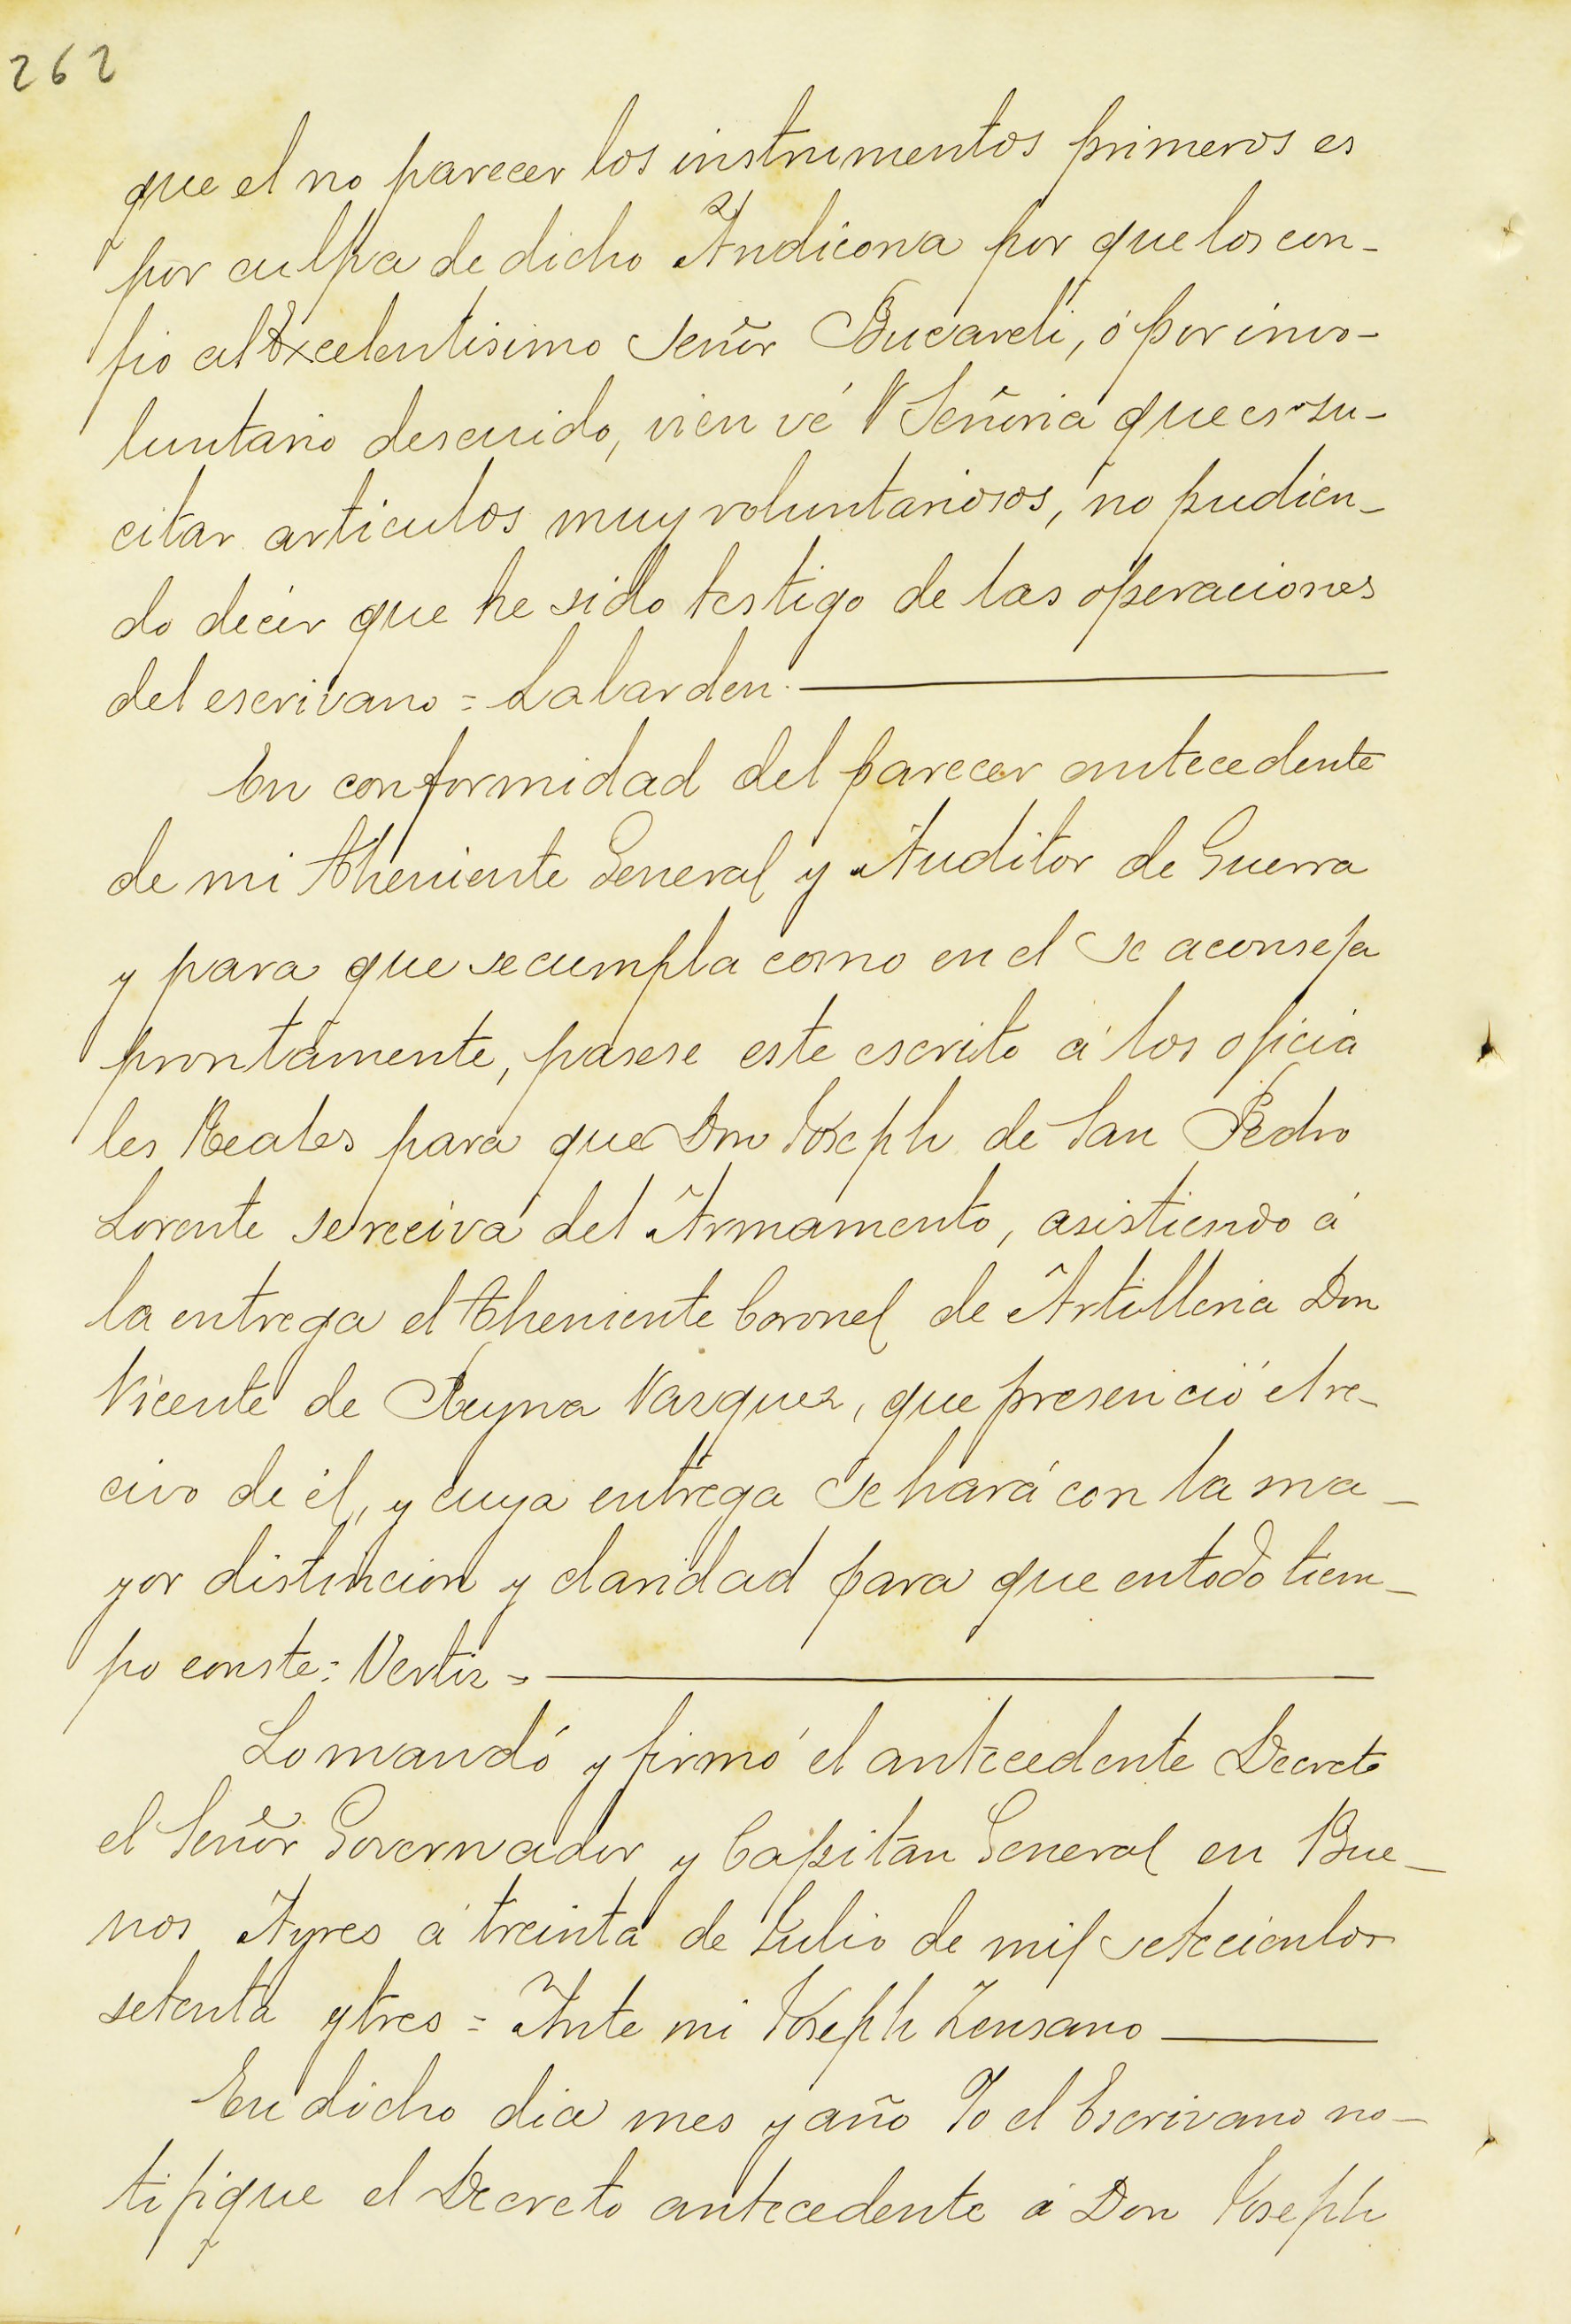 262
que el no parecer los instrumentos primeros es
por culpa de dicho Andicona por que los con-
fio al Excelentisimo Señor Bucareli, ó por invo-
luntario descuido, vien vé V Señoria que es su-
citar articulos muy voluntariosos, no pudien-
do decir que he sido testigo de las operaciones
del escrivano = Labarden.
En conformidad del parecer antecedente
de mi Theniente General y Auditor de Guerra
y para que se cumpla como en el se aconseja
prontamente, pasese este escrito á los oficia
les Reales para que Don Joseph de San Pedro
Lorente se reciva del Armamento, asistiendo á
la entrega el Theniente Coronel de Artilleria Don
Vicente de Reyna Vazquez, que presenció el re-
civo de él, y cuya entrega se hará con la ma-
yor distincion y claridad para que en todo tiem-
po conste = Vertiz =
Lo mandó y firmó el antecedente Decreto
el Señor Governador y Capitan General en Bue-
nos Ayres á treinta de Julio de mil setecientos
setenta y tres = Ante mi Joseph Zenzano
En dicho dia mes y año Yo el Escrivano no-
tifique el Decreto antecedente á Don Joseph